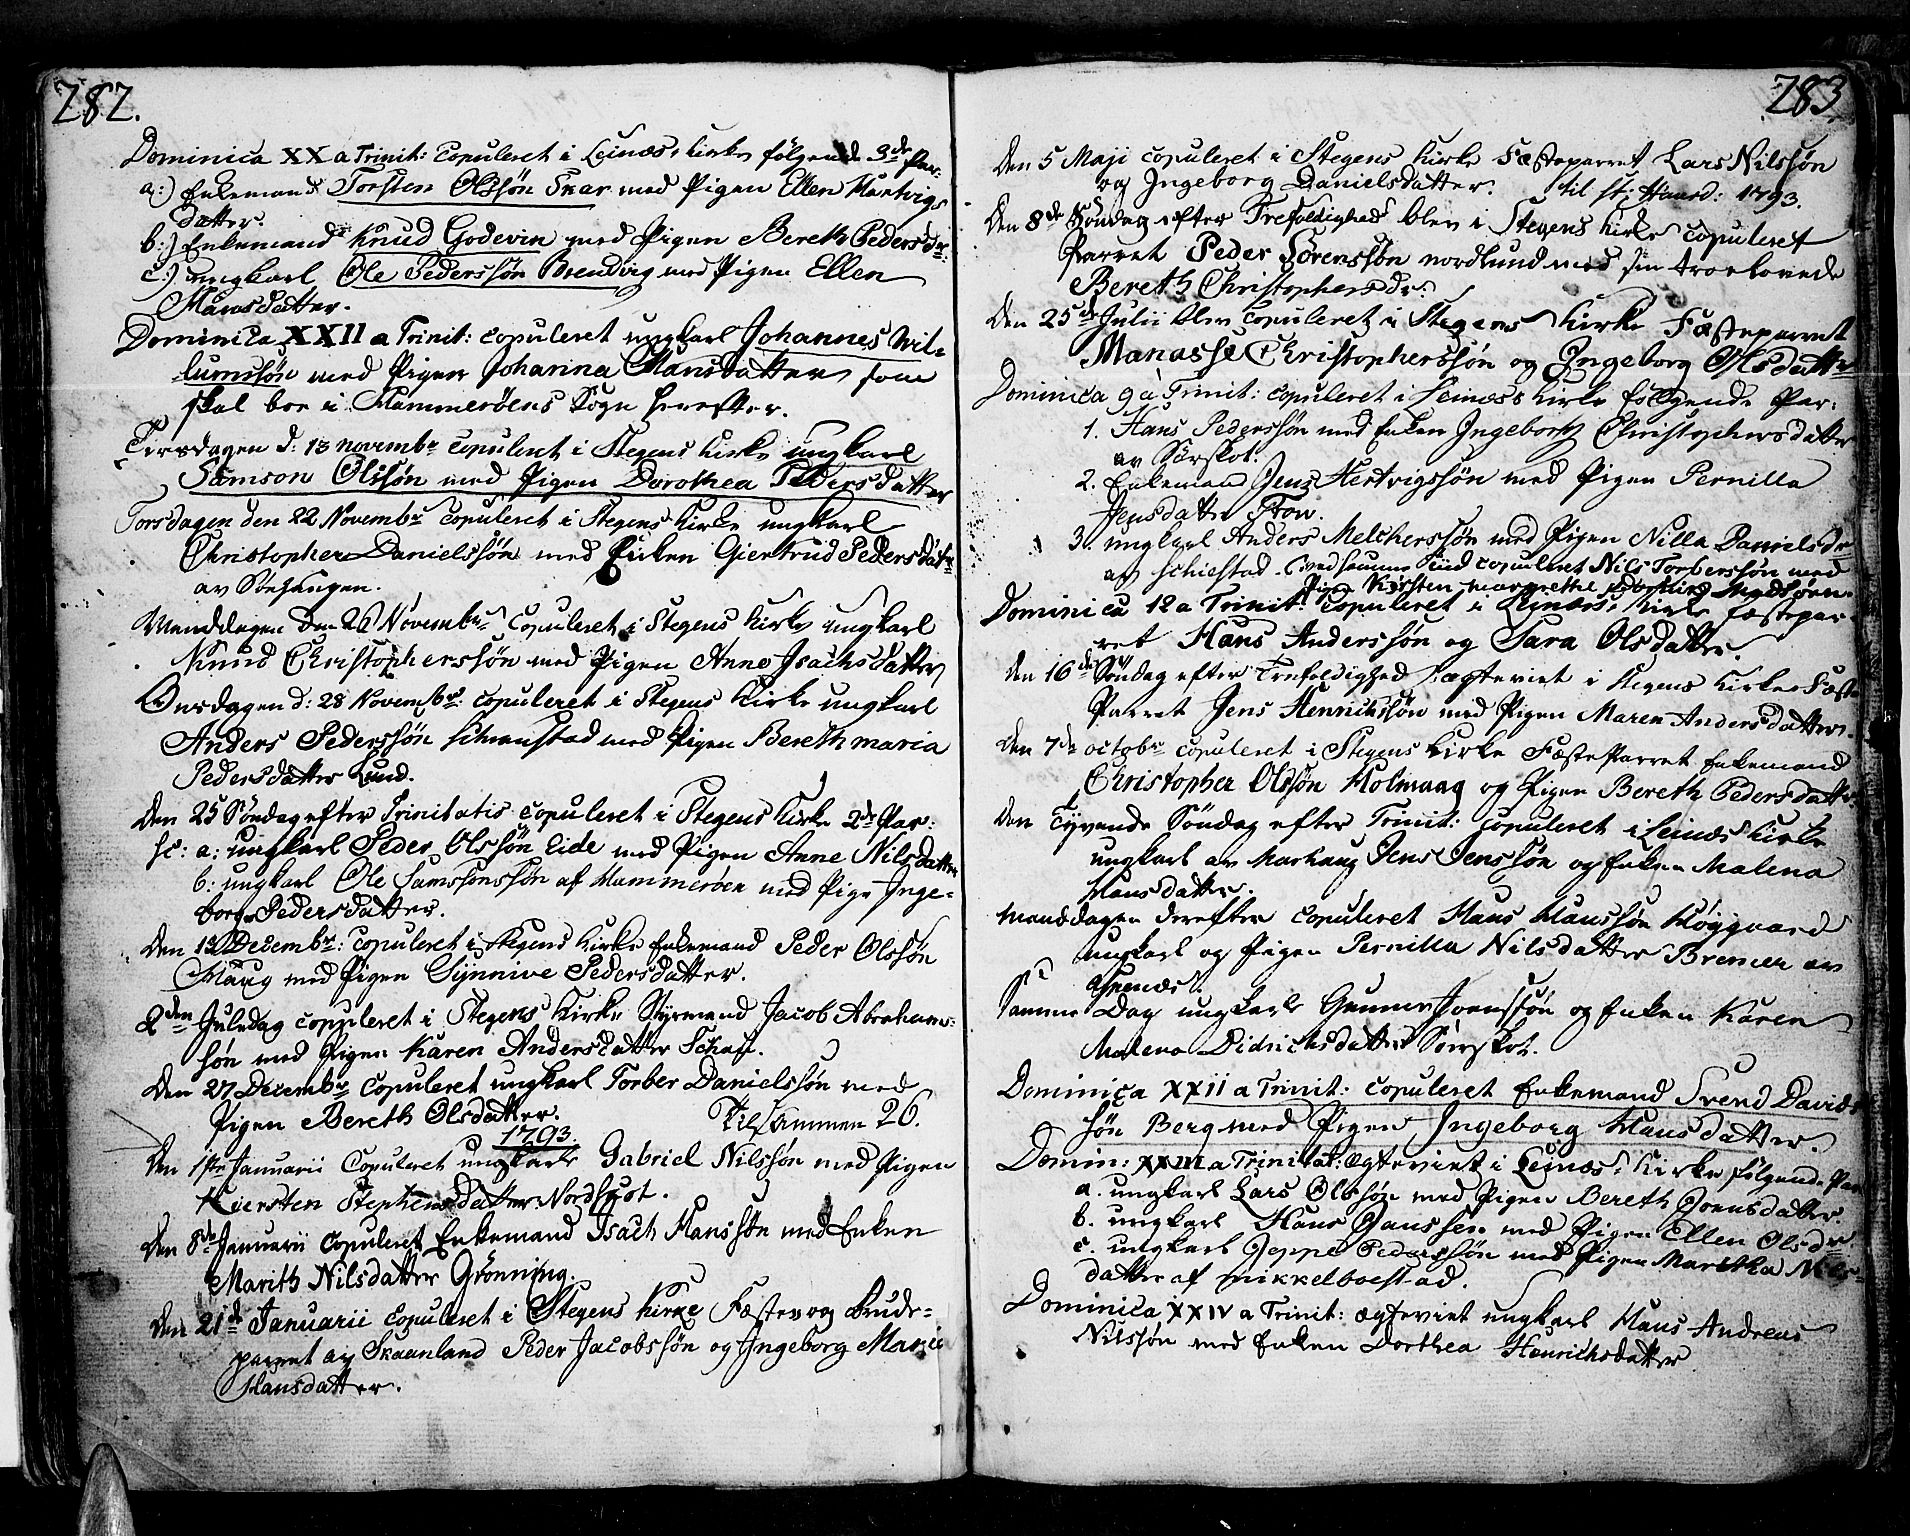 282.
Dominica XX a Trinit: Copuleret i Leinæs Kirke følgende 3de Par:
a:) Enkemand Torsten Olssøn Skar med Pigen Ellen Hertvigs
datter.
b:) Enkemand Knud Godevin med Pigen Bereth Pedersdr:
c:) ungkarl Ole Pederssøn Brendvig med Pigen Ellen
Hansdatter.
Dominica XXII a Trinit: copuleret ungkarl Johannes Wil-
lumssøn med Pigen Johanna Hansdatter som
skal boe i Hammerøens Sogn herefter.
Tirsdagen d: 13 Novembr copuleret i Stegens Kirke ungkarl
Samson Olssøn med Pigen Dorothea Pedersdatter
Torsdagen den 22 Novembr copuleret i Stegens Kirke ungkarl
Christopher Danielssøn med Enken Giertrud Pedersdatr
av
Manddagen den 26 Novembr Copuleret i Stegens Kirke ungkarl
Knud Christopherssøn med Pigen Anne Isachsdatter
Onsdagen d: 28 Novembr: copuleret i Stegens Kirke ungkarl
Anders Pederssøn med Pigen Bereth Maria
Pedersdatter Lund.
Den 25 Søndag efter Trinitatis copuleret i Stegens Kirke 2de Par:
sc: a: ungkarl Peder Olssøn Eide med Pigen Anne Nilsdatter
b: ungkarl Ole Samssonssøn af Hammerøen med Pige Inge-
borg Pedersdatter.
Den 13 Decembr: Copuleret i Stegens Kirke Enkemand Peder Olssøn
Haug med Pigen Synnive Pedersdatter.
2den Juledag copuleret i Stegens Kirke Styrmand Jacob Abraham-
søn med Pigen Karen Andersdatter
Den 27 Decembr copuleret ungkarl Torber Danielssøn med
Pigen Bereth Olsdatter. Tilsammen 26.
1793.
Den 1ste Januarii Copuleret ungkarl Gabriel Nilssøn med Pigen
Kiersten Stephensdatter
Den 8de Januarii copuleret Enkemand Isach Hanssøn med Enken
Marith Nilsdatter Grønning.
Den 21de Januarii Copuleret i Stegens Kirke Fæste og Brude-
parret av Skaanland Peder Jacobssøn og Ingeborg Maria
Hansdatter.
283.
Den 5 Maji copuleret i Stegens Kirke Fæsteparret Lars Nilssøn
og Ingeborg Danielsdatter. til St: Hansd: 1793.
Den 8de Søndag efter Trefoldighed blev i Stegens Kirke copuleret
Parret Peder Sørenssøn Nordlund med sin trolovede
Bereth Christophersdr:
Den 25de Julii blev Copuleret i Stegens Kirke Fæsteparret
Manasse Christopherssøn og Ingeborg Olsdatter
Dominica 9 a Trinit: copuleret i Leinæss Kirke følgende Par:
1. Hans Pederssøn med Enken Ingeborg Christophersdatter
av Sørskot.
2. Enkemand Jens Hertvigssøn med Pigen Pernilla
Jensdatter
3. ungkarl Anders Melcherssøn med Pigen Nilla Danielsdr
af Schiestad. ved samme Tiid copuleret Nils Torberssøn med
Pigen Kirsten Margrethe
Dominica 12 a Trinit: Copuleret i Leinæs Kirke fæstepar-
ret Hans Anderssøn og Sara Olsdatter.
Den 16de Søndag efter Trefoldighed Ægteviet i Stegens Kirke Fæste
Parret Jens Henrichssøn med Pigen Maren Andersdatter.
Den 7de Octobr copuleret i Stegens Kirke Fæste Parret Enkemand
Christopher Olssøn Holmaag og Pigen Bereth Pedersdatter.
Den Tyvende Søndag efter Trinit: copuleret i Leinæs Kirke
ungkarl av Jens Jenssøn og Enken Malena
Hansdatter.
Manddagen derefter copuleret Hans Hanssøn
ungkarl og Pigen Pernilla Nilsdatter Bremer av
Samme Dag ungkarl Gunner Joenssøn og Enken Karen
Malena Didrichsdatter Sørskot.
Dominica XXII a Trinit: copuleret Enkemand Svend David-
søn Berg med Pigen Ingeborg Hansdatter.
Domin: XXIII a Trinitat: Ægteviet i Leinæs Kirke følgende Par
a. ungkarl Lars Olssøn med Pigen Bereth Joensdatter.
b. ungkarl Hans Hanssen med Pigen Ellen Olsdr
c. ungkarl Jeppe Pederssøn med Pigen Maretha Nils-
datter af Mikkelboestad.
Dominica XXIV a Trinit: ægteviet ungkarl Hans Andreas
Nilssøn med Enken Dorthea Henrichsdatter